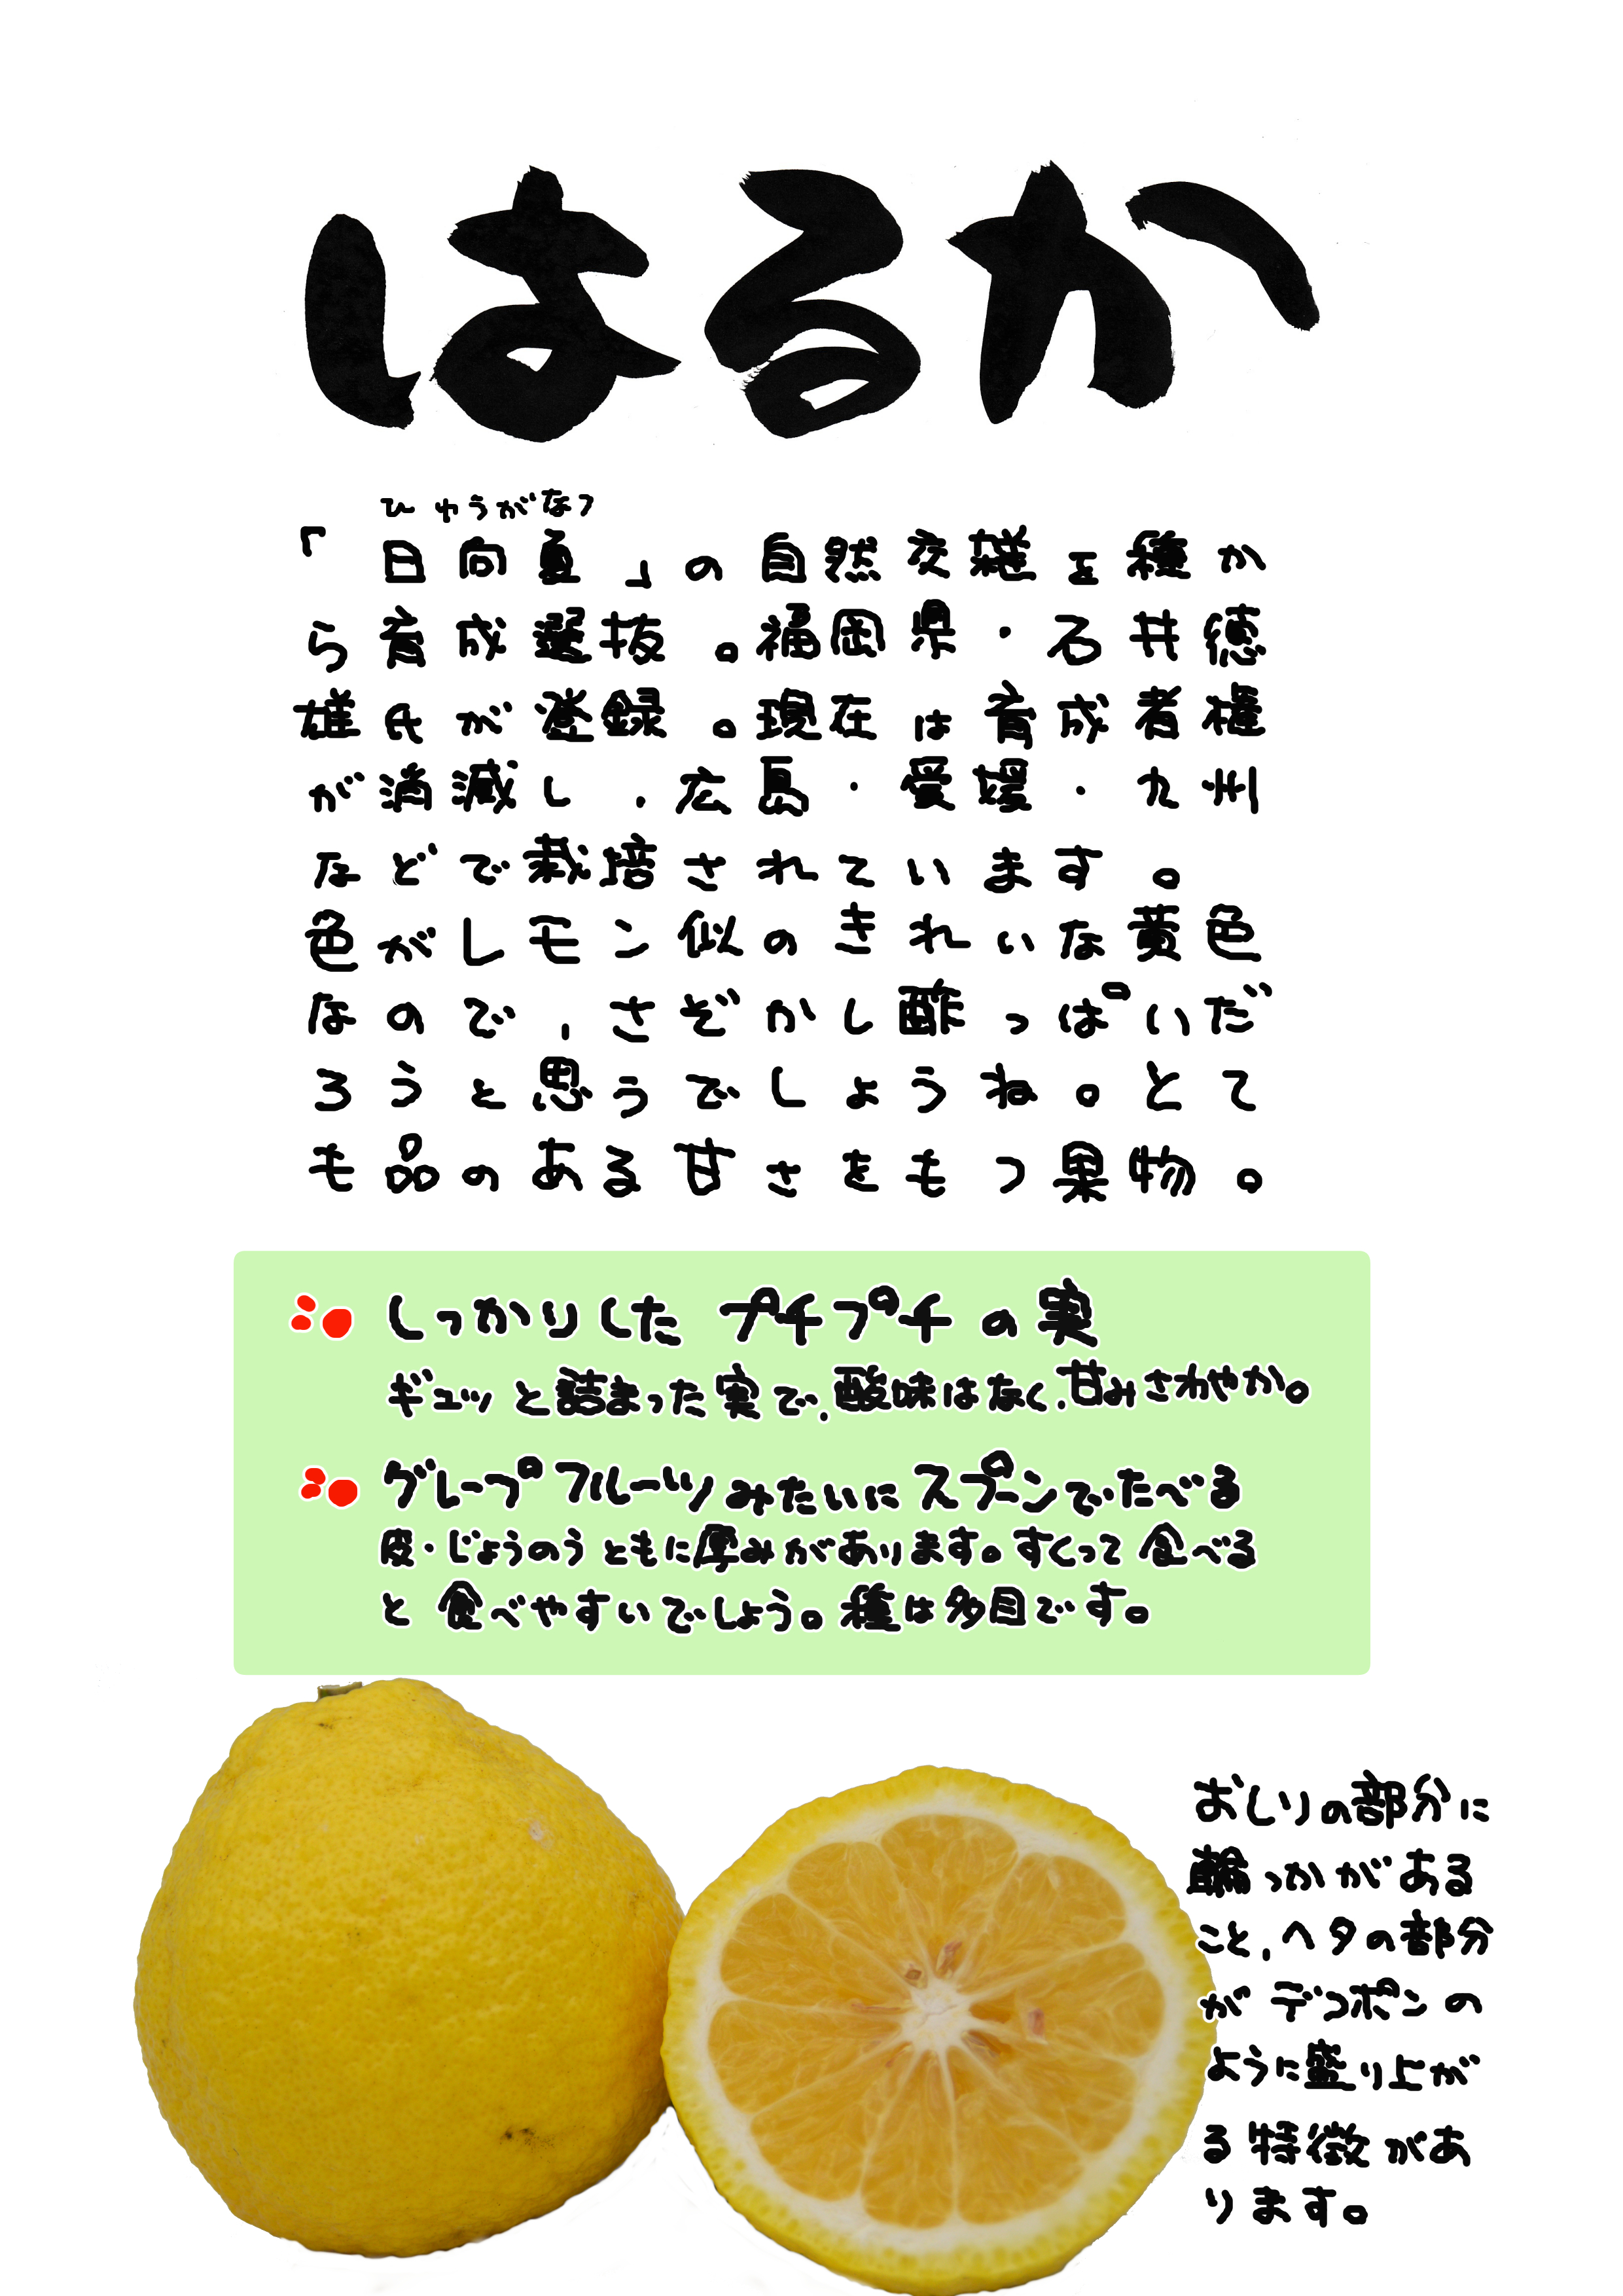 はるか
ひゅうがなつ
「日向夏」の自然交雑を種か
ら育成選抜。福岡県・石井徳
雄氏が登録。現在は育成者権
が消滅し、広島・愛媛・九州
などで栽培されています。
色がレモン似のきれいな黄色
なので、さぞかし酢っぱいだ
ろうと思うでしょうね。とて
も品のある甘さをもつ果物。
しっかりしたプチプチの実
ギュッと詰まった実で、酸味はなく、甘みさわやか。
グレープフルーツみたいにスプーンでたべる
皮・じょうのうともに厚みがあります。すくって食べる
と食べやすいでしょう。種は多目です。
おしりの部分に
輪っかがある
こと、ヘタの部分
がデコポンの
ように盛り上が
る特徴があ
ります。